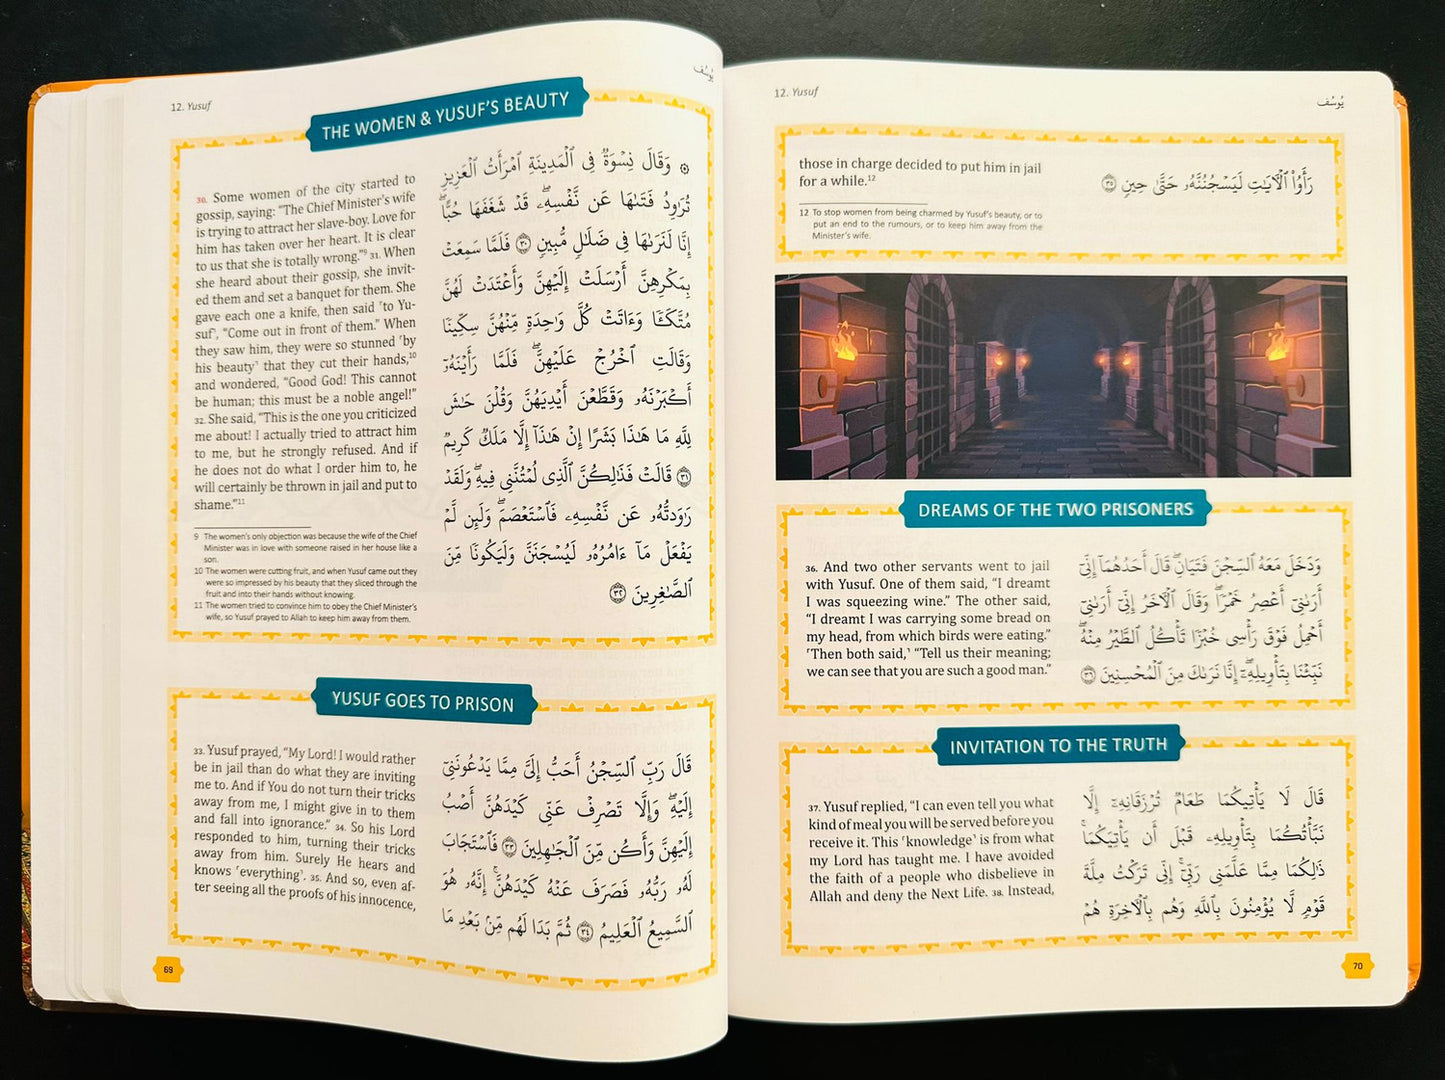 12. Yusuf
يُوسُف
THE WOMEN & YUSUF'S BEAUTY
30. Some women of the city started to
gossip, saying: “The Chief Minister's wife
is trying to attract her slave-boy. Love for
him has taken over her heart. It is clear
to us that she is totally wrong.”⁹ 31. When
she heard about their gossip, she invit-
ed them and set a banquet for them. She
gave each one a knife, then said ˹to Yu-
suf˺, “Come out in front of them.” When
they saw him, they were so stunned ˹by
his beauty˺ that they cut their hands,¹⁰
and wondered, “Good God! This cannot
be human; this must be a noble angel!”
32. She said, “This is the one you criticized
me about! I actually tried to attract him
to me, but he strongly refused. And if
he does not do what I order him to, he
will certainly be thrown in jail and put to
shame.”¹¹
9 The women's only objection was because the wife of the Chief
Minister was in love with someone raised in her house like a
son.
10 The women were cutting fruit, and when Yusuf came out they
were so impressed by his beauty that they sliced through the
fruit and into their hands without knowing.
11 The women tried to convince him to obey the Chief Minister's
wife, so Yusuf prayed to Allah to keep him away from them.
۞ وَقَالَ نِسْوَةٌ فِى ٱلْمَدِينَةِ ٱمْرَأَتُ ٱلْعَزِيزِ
تُرَٰوِدُ فَتَىٰهَا عَن نَّفْسِهِۦ ۖ قَدْ شَغَفَهَا حُبًّا ۖ
إِنَّا لَنَرَىٰهَا فِى ضَلَـٰلٍ مُّبِينٍ ٣٠ فَلَمَّا سَمِعَتْ
بِمَكْرِهِنَّ أَرْسَلَتْ إِلَيْهِنَّ وَأَعْتَدَتْ لَهُنَّ
مُتَّكَـًٔا وَءَاتَتْ كُلَّ وَٰحِدَةٍ مِّنْهُنَّ سِكِّينًا
وَقَالَتِ ٱخْرُجْ عَلَيْهِنَّ ۖ فَلَمَّا رَأَيْنَهُۥٓ
أَكْبَرْنَهُۥ وَقَطَّعْنَ أَيْدِيَهُنَّ وَقُلْنَ حَـٰشَ
لِلَّهِ مَا هَـٰذَا بَشَرًا إِنْ هَـٰذَآ إِلَّا مَلَكٌ كَرِيمٌ
٣١ قَالَتْ فَذَٰلِكُنَّ ٱلَّذِى لُمْتُنَّنِى فِيهِ ۖ وَلَقَدْ
رَٰوَدتُّهُۥ عَن نَّفْسِهِۦ فَٱسْتَعْصَمَ ۖ وَلَئِن لَّمْ
يَفْعَلْ مَآ ءَامُرُهُۥ لَيُسْجَنَنَّ وَلَيَكُونًا مِّنَ
ٱلصَّـٰغِرِينَ ٣٢
YUSUF GOES TO PRISON
33. Yusuf prayed, “My Lord! I would rather
be in jail than do what they are inviting
me to. And if You do not turn their tricks
away from me, I might give in to them
and fall into ignorance.” 34. So his Lord
responded to him, turning their tricks
away from him. Surely He hears and
knows ˹everything˺. 35. And so, even af-
ter seeing all the proofs of his innocence,
قَالَ رَبِّ ٱلسِّجْنُ أَحَبُّ إِلَىَّ مِمَّا يَدْعُونَنِىٓ
إِلَيْهِ ۖ وَإِلَّا تَصْرِفْ عَنِّى كَيْدَهُنَّ أَصْبُ
إِلَيْهِنَّ وَأَكُن مِّنَ ٱلْجَـٰهِلِينَ ٣٣ فَٱسْتَجَابَ
لَهُۥ رَبُّهُۥ فَصَرَفَ عَنْهُ كَيْدَهُنَّ ۚ إِنَّهُۥ هُوَ
ٱلسَّمِيعُ ٱلْعَلِيمُ ٣٤ ثُمَّ بَدَا لَهُم مِّنۢ بَعْدِ مَا
69
12. Yusuf
يُوسُف
those in charge decided to put him in jail
for a while.¹²
12 To stop women from being charmed by Yusuf's beauty, or to
put an end to the rumours, or to keep him away from the
Minister's wife.
رَأَوُا۟ ٱلْـَٔايَـٰتِ لَيَسْجُنُنَّهُۥ حَتَّىٰ حِينٍ ٣٥
DREAMS OF THE TWO PRISONERS
36. And two other servants went to jail
with Yusuf. One of them said, “I dreamt
I was squeezing wine.” The other said,
“I dreamt I was carrying some bread on
my head, from which birds were eating.”
˹Then both said,˺ “Tell us their meaning;
we can see that you are such a good man.”
وَدَخَلَ مَعَهُ ٱلسِّجْنَ فَتَيَانِ ۖ قَالَ أَحَدُهُمَآ إِنِّىٓ
أَرَىٰنِىٓ أَعْصِرُ خَمْرًا ۖ وَقَالَ ٱلْـَٔاخَرُ إِنِّىٓ أَرَىٰنِىٓ
أَحْمِلُ فَوْقَ رَأْسِى خُبْزًا تَأْكُلُ ٱلطَّيْرُ مِنْهُ ۖ
نَبِّئْنَا بِتَأْوِيلِهِۦٓ ۖ إِنَّا نَرَىٰكَ مِنَ ٱلْمُحْسِنِينَ ٣٦
INVITATION TO THE TRUTH
37. Yusuf replied, “I can even tell you what
kind of meal you will be served before you
receive it. This ˹knowledge˺ is from what
my Lord has taught me. I have avoided
the faith of a people who disbelieve in
Allah and deny the Next Life. 38. Instead,
قَالَ لَا يَأْتِيكُمَا طَعَامٌ تُرْزَقَانِهِۦٓ إِلَّا
نَبَّأْتُكُمَا بِتَأْوِيلِهِۦ قَبْلَ أَن يَأْتِيَكُمَا ۚ
ذَٰلِكُمَا مِمَّا عَلَّمَنِى رَبِّىٓ ۚ إِنِّى تَرَكْتُ مِلَّةَ
قَوْمٍ لَّا يُؤْمِنُونَ بِٱللَّهِ وَهُم بِٱلْـَٔاخِرَةِ هُمْ
70